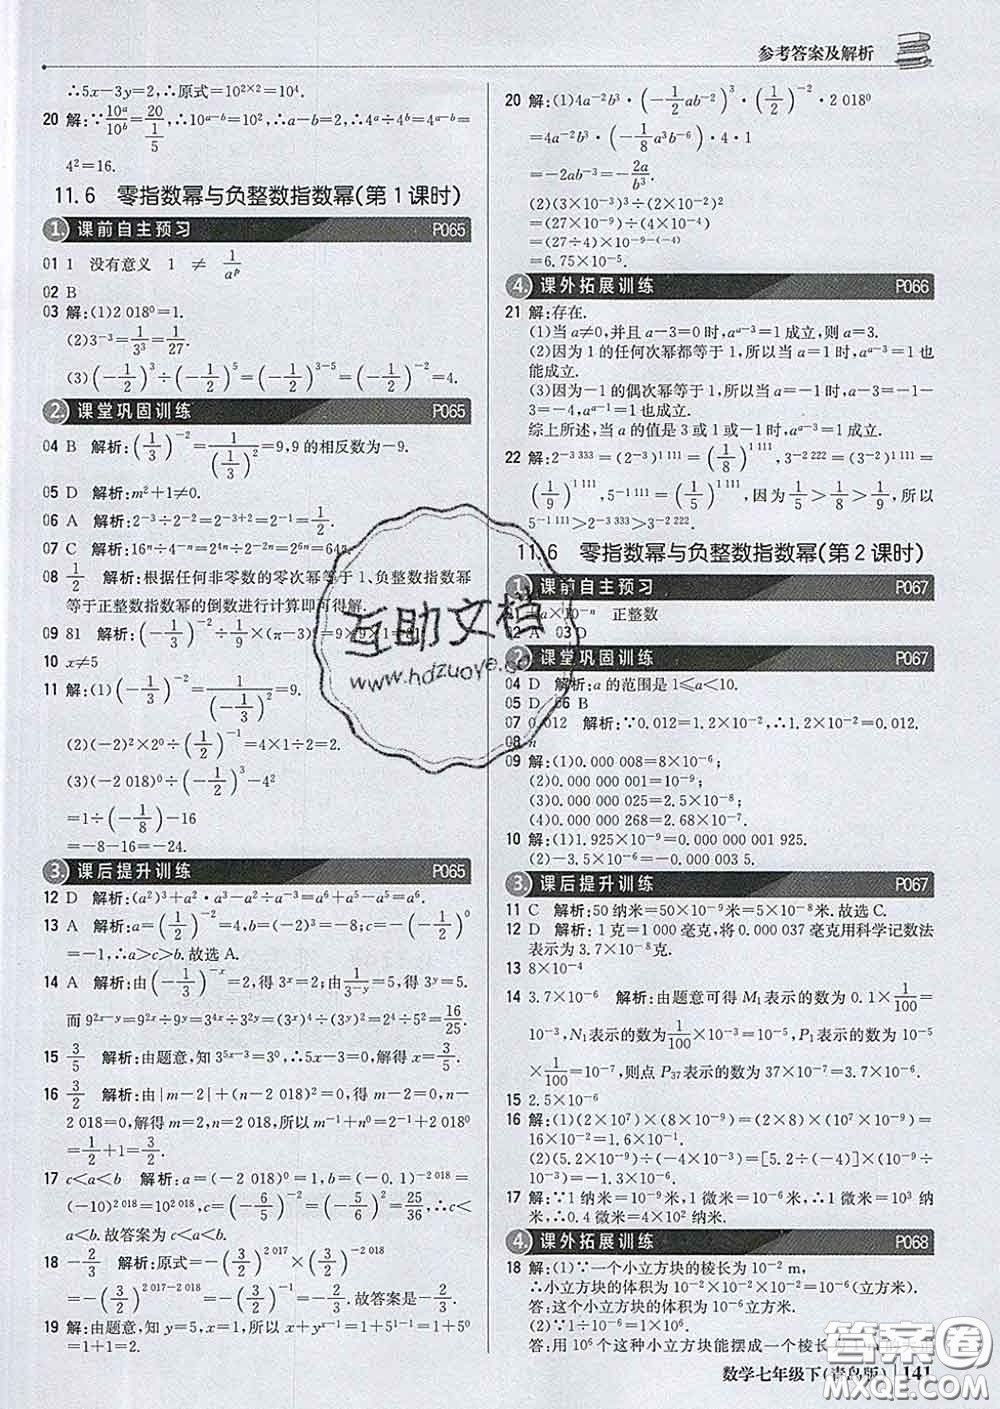 参考答案及解析
∴5x-3y=2,∴原式=10^{2×2}=10^4.
20 解:∵10^a/10^b=20/(1/5),∴10^{a-b}=10^2,∴a-b=2,∴4^a÷4^b=4^{a-b}=
4^2=16.
11.6 零指数幂与负整数指数幂(第1课时)
1. 课前自主预习 P065
01 1 没有意义 1 ≠ 1/a^p
02 B
03 解:(1)2 018^0=1.
(2)3^{-3}=1/3^3=1/27.
(3)(-1/2)^3÷(-1/2)^5=(-1/2)^{3-5}=(-1/2)^{-2}=4.
2. 课堂巩固训练 P065
04 B 解析:(1/3)^{-2}=1/(1/3)^2=9,9的相反数为-9.
05 D 解析:m^2+1≠0.
06 A 解析:2^{-3}÷2^{-2}=2^{-3+2}=2^{-1}=1/2.
07 C 解析:16^n÷4^n=4^{2n}÷4^n=4^n=2^{2n}=2^6=64.
08 1/2 解析:根据任何非零数的零次幂等于1、负整数指数幂
等于正整数指数幂的倒数进行计算即可得解.
09 81 解析:(-1/3)^{-2}÷1/9×(π-3)^0=9×9×1=81.
10 x≠5
11 解:(1)(-1/3)^{-2}=1/(-1/3)^2=9.
(2)(-2)^2×2^0÷(1/2)^{-1}=4×1÷2=2.
(3)(-2 018)^0÷(-1/2)^3-4^2
=1÷(-1/8)-16
=-8-16=-24.
3. 课后提升训练 P065
12 D 解析:(a^2)^3+a^2·a^3-a^2÷a^{-3}=a^6+a^5-a^5=a^6.
13 A 解析:a=(1/2)^{-2}=4,b=(-2)^3=-8;c=-(-1/2)^0
=-1,∴a>c>b.故选A.
14 A 解析:由(-1/3)^{-x}=2,得3^x=2;由(1/3)^{-y}=5,得3^y=5.
而9^{2x-y}=9^{2x}÷9^y=3^{4x}÷3^{2y}=(3^x)^4÷(3^y)^2=2^4÷5^2=16/25.
15 3/5 解析:由题意,知3^{5x-3}=3^0,∴5x-3=0,解得x=3/5.
16 3/2 解析:由|m-2|+(n-2 018)^2=0,得m-2=0,n-
2 018=0,解得m=2,n=2 018,所以m^{-1}+n^0=2^{-1}+2 018^0
=1/2+1=3/2.
17 c<a<b 解析:a=(-2 018)^0=1,b=(-0.1)^{-2 018}=
(-10)^{2 018}=10^{2 018},c=(-6/5)^{-2}=(-5/6)^2=25/36,∴c<a<
b.故答案为c<a<b.
18 -2/3 解析:原式=(-3/2)^{2 017}×(-3/2)^{-2 018}=
(-3/2)^{2 017-2 018}=(-3/2)^{-1}=-2/3.故答案是-2/3.
19 解:由题意,知y=5,x=1,所以x+y^{x-1}=1+5^{1-1}=1+5^0
=1+1=2.
20 解:(1)4a^{-2}b^3·(-1/2ab^{-2})^3·(1/2)^{-2}·2 018^0
=4a^{-2}b^3·(-1/8a^3b^{-6})·4·1
=-2ab^{-3}=-2a/b^3.
(2)(3×10^{-5})^3÷(2×10^{-2})^2
=(27×10^{-15})÷(4×10^{-4})
=(27÷4)×10^{-15-(-4)}
=6.75×10^{-11}.
4. 课外拓展训练 P066
21 解:存在.
(1)当a≠0,并且a-3=0时,a^{a-3}=1成立,则a=3.
(2)因为1的任何次幂都等于1,所以当a=1时,a^{a-3}=1也
能成立.
(3)因为-1的偶次幂等于1,所以当a=-1时,a-3=-1-
3=-4,a^{a-1}=1也成立.
综上所述,当a的值是3或1或-1时,a^{a-3}=1成立.
22 解:2^{-3 333}=(2^{-3})^{1 111}=(1/8)^{1 111},3^{-2 222}=(3^{-2})^{1 111}=
(1/9)^{1 111},5^{-1 111}=(1/5)^{1 111},因为1/5>1/8>1/9,所以
5^{-1 111}>2^{-3 333}>3^{-2 222}.
11.6 零指数幂与负整数指数幂(第2课时)
1. 课前自主预习 P067
a×10^{-n} 正整数
02 A 03 D
2. 课堂巩固训练 P067
04 D 解析:a的范围是1≤a<10.
05 D 06 B
07 0.012 解析:∵0.012=1.2×10^{-2},∴1.2×10^{-2}=0.012.
08 n
09 解:(1)0.000 008=8×10^{-6};
(2)0.000 000 001=10^{-9};
(3)0.000 000 025=2.5×10^{-8};
(4)0.000 000 268=2.68×10^{-7}.
10 解:(1)1.925×10^{-9}=0.000 000 001 925.
(2)-2.003×10^{-5}=-0.000 020 03.
3. 课后提升训练 P067
11 C 解析:50纳米=50×10^{-9}米=5×10^{-8}米.故选C.
12 D 解析:1克=1 000毫克,将0.000 037毫克用科学记数法
表示为3.7×10^{-8}克.
13 8×10^{-4}
14 3.7×10^{-6} 解析:由题意可得M_1表示的数为0.1×1/100=
10^{-3},N_1表示的数为1/100×10^{-3}=10^{-5},P_1表示的数为10^{-5}
×1/100=10^{-7},则点P_{37}表示的数为37×10^{-7}=3.7×10^{-6}.
15 2.5×10^{-6}
16 解:(1)(2×10^7)×(8×10^{-9})=(2×8)×(10^7×10^{-9})=
16×10^{-2}=1.6×10^{-1}.
(2)(5.2×10^{-9})÷(-4×10^{-3})=[5.2÷(-4)]×(10^{-9}÷
10^{-3})=-1.3×10^{-6}.
17 解:∵1纳米=10^{-9}米,1微米=10^{-6}米,∴1微米=10^3纳
米,∴0.4微米=4×10^2纳米.
4. 课外拓展训练 P068
18 解:(1)∵一个小立方块的棱长为10^{-2}m,
∴小立方块的体积为10^{-2}×10^{-2}×10^{-2}=10^{-6}(立方米).
答:这个小立方块的体积为10^{-6}立方米.
(2)∵1÷10^{-6}=1×10^6,
答:用10^6个这种小立方块能摆成一个棱长
数学七年级下(青岛版) 141
互助文档
www.hdzuoye.com
答案圈
MXQE.COM